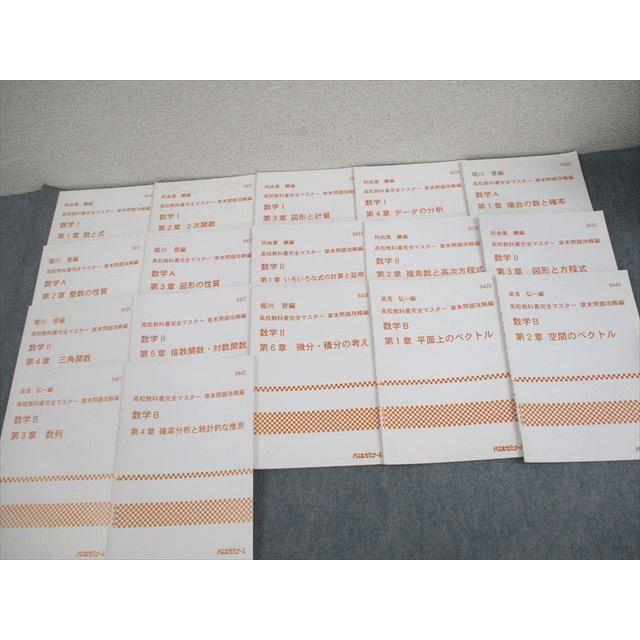 阿由葉 勝編
高校教科書完全マスター 章末問題攻略編
数学Ⅰ
第1章 数と式
阿由葉 勝編
高校教科書完全マスター 章末問題攻略編
数学Ⅰ
第2章 2次関数
阿由葉 勝編
高校教科書完全マスター 章末問題攻略編
数学Ⅰ
第3章 図形と計量
阿由葉 勝編
高校教科書完全マスター 章末問題攻略編
数学Ⅰ
第4章 データの分析
堀川 晋編
高校教科書完全マスター 章末問題攻略編
数学A
第1章 場合の数と確率
堀川 晋編
高校教科書完全マスター 章末問題攻略編
数学A
第2章 整数の性質
堀川 晋編
高校教科書完全マスター 章末問題攻略編
数学A
第3章 図形の性質
阿由葉 勝編
高校教科書完全マスター 章末問題攻略編
数学Ⅱ
第1章 いろいろな式の計算と証明
阿由葉 勝編
高校教科書完全マスター 章末問題攻略編
数学Ⅱ
第2章 複素数と高次方程式
阿由葉 勝編
高校教科書完全マスター 章末問題攻略編
数学Ⅱ
第3章 図形と方程式
堀川 晋編
高校教科書完全マスター 章末問題攻略編
数学Ⅱ
第4章 三角関数
9437
高校教科書完全マスター 章末問題攻略編
数学Ⅱ
第5章 指数関数・対数関数
9438
堀川 晋編
高校教科書完全マスター 章末問題攻略編
数学Ⅱ
第6章 微分・積分の考え
代々木ゼミナール
9439
湯浅 弘一編
高校教科書完全マスター 章末問題攻略編
数学B
第1章 平面上のベクトル
代々木ゼミナール
9440
湯浅 弘一編
高校教科書完全マスター 章末問題攻略編
数学B
第2章 空間のベクトル
代々木ゼミナール
9441
湯浅 弘一編
高校教科書完全マスター 章末問題攻略編
数学B
第3章 数列
9442
高校教科書完全マスター 章末問題攻略編
数学B
第4章 確率分布と統計的な推測
代々木ゼミナール